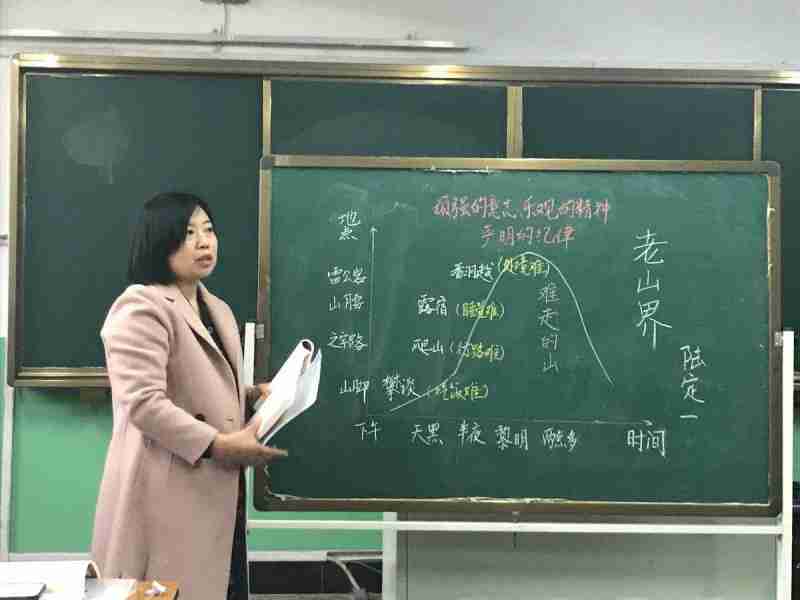 顽强的意志、乐观的精神
严明的纪律
地点
雷公岩
山腰
之字路
山脚
翻越(处境难)
露宿(睡觉难)
爬山(行路难)
攀谈(吃饭难)
难走的山
老山界
陆定一
下午 天黑 半夜 黎明 两点多 时间